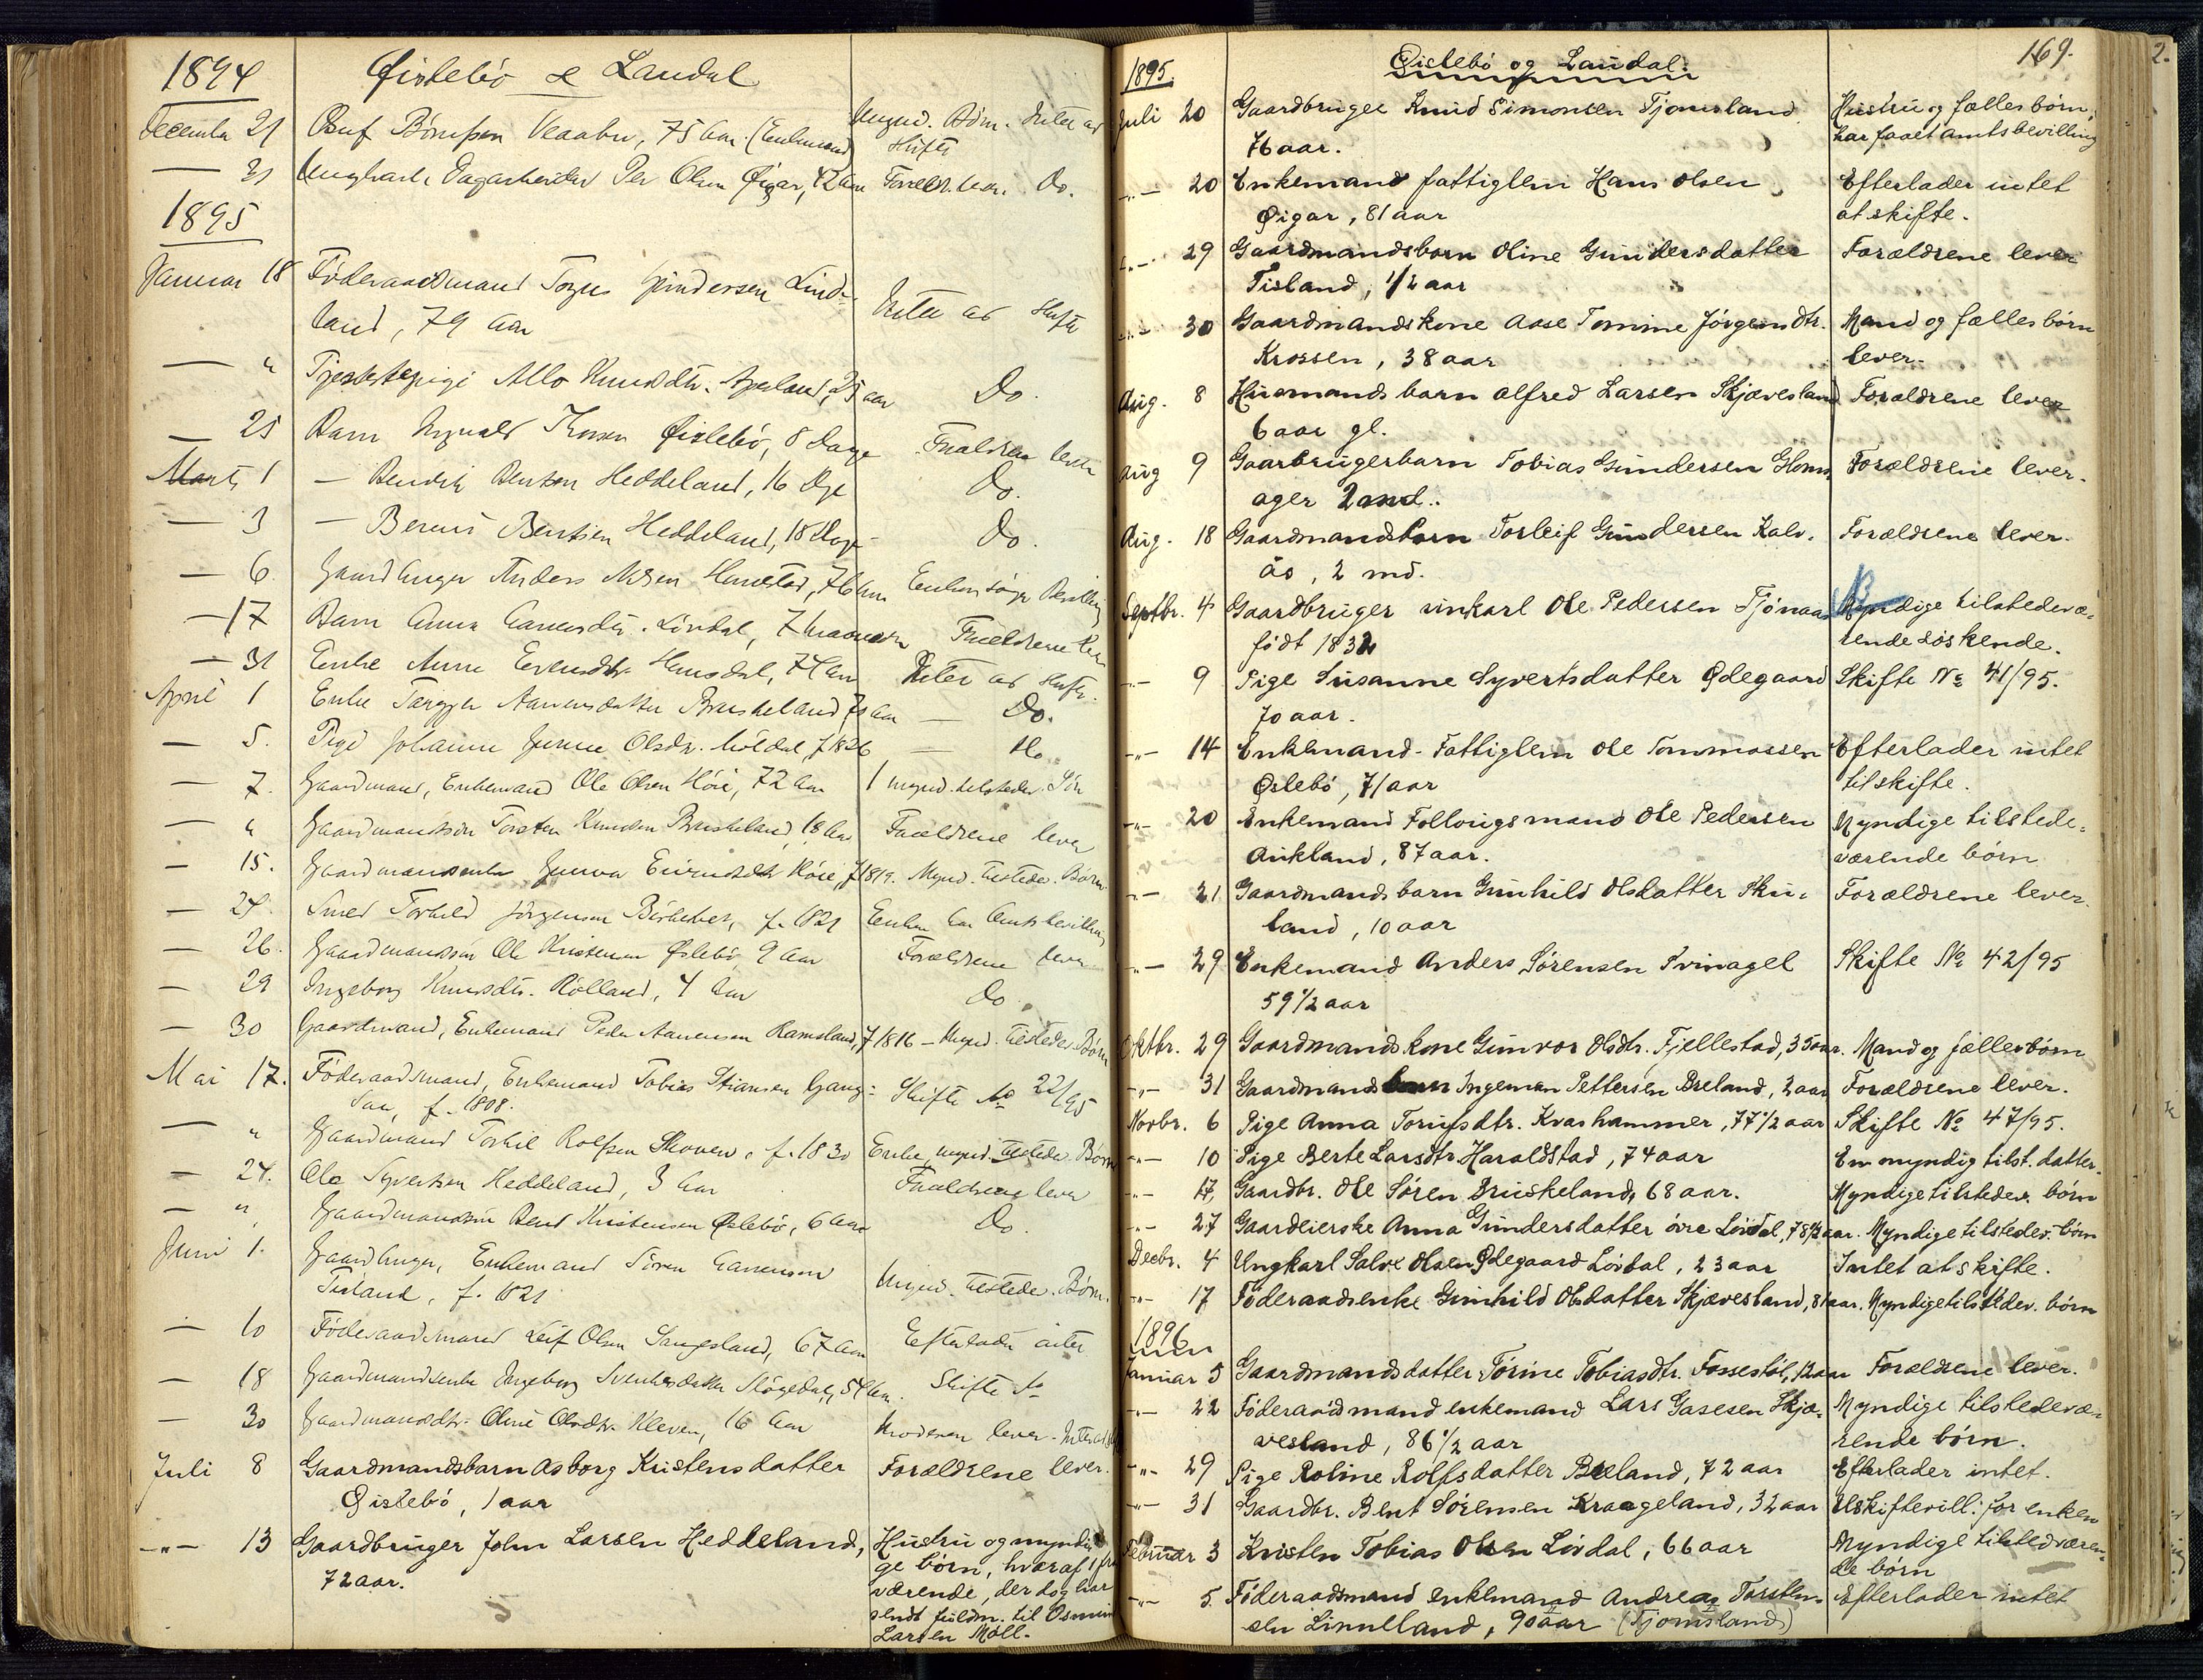 1894
Øislebö & Laudal
December 21
75 Aar (Enkemand)
Mynd. Börn. Intet at
Skifte
— 31
Ungkarl, Dagarbeider Per Olsen Øigar, 42 Aar
Do.
1895
Januar 18
Föderaadsmand Gundersen Lind-
land, 79 Aar
Intet at Skifte
— "
Tjenestepige Knudsdtr. 25 aar
Do.
— 25
Barn Øislebö, 8 Dage
Forældrene lever
Marts 1
— Bendik Bentsen Heddeland, 16 Dge
Do.
— 3
— Bentsen Heddeland, 18 Dage
Do.
— 6.
Gaardbruger Anders 76 Aar
Enken söger Bevilling
— 17
Barn Anna Lövdal, 7 Maaneder
Forældrene lever
— 31
Enke Anne 74 Aar
Intet at skifte.
April 1
Enke Bruskeland, Aar
— Do.
— 5.
Pige Johanne Olsdtr. f 1826
— Do.
— 7.
Gaardmand, Enkemand Ole Olsen Höie, 72 Aar
1 mynd. tilstedev. Sön
— "
Gaardmandssön Torsten Knudsen Bruskeland, 18 Aar
Forældrene lever
— 15.
Gaardmandsenke Gunvor Höie, f 1819.
Mynd. tilstedev. Börn
— 24.
Smed Torkild Jörgensen f. 1821
Enken har Amtsbevilling
— 26.
Gaardmandssön Ole Kristensen Øslebö 9 Aar
Forældrene lever
— 29
Ingeborg Knudsdtr. Rölland, 4 Aar
Do
— 30
Gaardmand, Enkemand Peder Aanensen Ramsland, f 1816
— Mynd. tilstedev. Börn
Mai 17.
Föderaadsmand, Enkemand Tobias Stiansen
f. 1808.
Skifte No 22/95
— "
Gaardmand Torkil Rolfsen Skoven, f. 1830
Enke, mynd. tilstedev. Börn
— 24.
Ole Syvertsen Heddeland, 3 Aar
Forældrene lever
— "
Gaardmandssön Bent Kristensen Øslebö, 6 Aar
Do.
Juni 1.
Gaardbruger, Enkemand Sören Aanensen
Tisland, f. 1821
Mynd. tilstedev. Börn.
— 10
Föderaadsmand Leif Olsen Sangesland, 67 Aar
Efterlader intet
— 18
Gaardmandsenke Ingeborg 54 Aar.
Skifte No
— 30
Gaardmandsdtr. Oline Olsdtr. Kleven, 16 Aar
Moderen lever.
Juli 8
Gaardmandsbarn Asborg Kristensdatter
Øislebö, 1 aar
Forældrene lever.
—"— 13
Gaardbruger John Larsen Heddeland,
72 aar.
Hustru og myndi-
ge börn, hvoraf 1 fra
værende, der dog har
sendt fuldm. til Osmun
Larsen Moll.
169.
1895.
Øislebö og Laudal.
Juli 20
Gaardbruger Knud Simonsen Tjomsland
76 aar.
Hustru og fælles börn,
har faaet amtsbevilling
—"— 20
Enkemand fattiglem Hans Olsen
Øigar, 81 aar
Efterlader intet
at skifte.
—"— 29
Gaardmandsbarn Oline Gundersdatter
Tisland, 1/2 aar
Forældrene lever
—"— 30
Gaardmandskone Aase Tomine Jörgensdtr.
Krossen, 38 aar
Mand og fælles börn
lever.
Aug. 8
Husmands barn Alfred Larsen Skjævesland
6 aar gl.
Forældrene lever
Aug 9
Gaarbrugerbarn Tobias Gundersen Gloms-
ager 2 md..
Forældrene lever.
Aug. 18
Gaardmandsbarn Torleif Gundersen Kalv-
ås, 2 md.
Forældrene lever.
Septbr. 4
Gaardbruger unkarl Ole Pedersen Tjönaas
födt 1832
Myndige tilstedevæ-
rende söskende.
—"— 9
Pige Susanne Syvertsdatter Ødegaard
70 aar.
Skifte No 41/95.
—"— 14
Enkemand - Fattiglem Ole Tommassen
Øslebö, 71 aar
Efterlader intet
til skifte.
—"— 20
Enkemand Follougsmand Ole Pedersen
Aukland, 87 aar.
Myndige tilstede-
værende börn
—"— 21
Gaardmandsbarn Gunhild Olsdatter Sku-
land, 10 aar
Forældrene lever.
—"— 29
Enkemand Anders Sörensen Svinagel
59 1/2 aar
Skifte No 42/95
Oktbr. 29
Gaardmandskone Gunvor Olsdtr. Fjellestad, 35 aar.
Mand og fælles börn
—"— 31
Gaardmandsbarn Ingeman Pettersen Breland, 2 aar
Forældrene lever.
Novbr. 6
Pige Anna Torufsdtr. Kvashammer, 77 1/2 aar
Skifte No 47/95.
—"— 10
Pige Berte Larsdtr. Haraldstad, 74 aar
En myndig tilst. datter.
—"— 17,
Gaardbr. Ole Sören Bruskeland, 68 aar.
Myndige tilstedev. börn
—"— 27
Gaardeierske Anna Gundersdatter övre Lövdal, 78 1/2 aar.
Myndige tilstedev. börn
Decbr. 4
Ungkarl Salve Olsen Ødegaard Lövdal, 23 aar
Intet at skifte.
—"— 17
Föderaadsenke Gunhild Olsdatter Skjævesland, 81 aar.
Myndige tilstedev. börn
1896
Januar 5
Gaardmandsdatter Torine Tobiasdtr. Fossestöl, 12 aar
Forældrene lever.
—"— 22
Föderaadmand enkemand Lars Gasesen Skjæ-
vesland, 86 1/2 aar
Myndige tilstedevæ-
rende börn.
—"— 29
Pige Roline Rolfsdatter Breland, 72 aar
Efterlader intet.
—"— 31
Gaardbr. Bent Sörensen Kraageland, 32 aar
Uskiftevill. for enken
Februar 3
Kristen Tobias Olsen Lövdal, 66 aar
Myndige tilstedværen-
de börn
—"— 5.
Föderaadsmand enkemand Andreas Torsten-
sen Linnelland, 90 aar (Tjomsland)
Efterlader intet